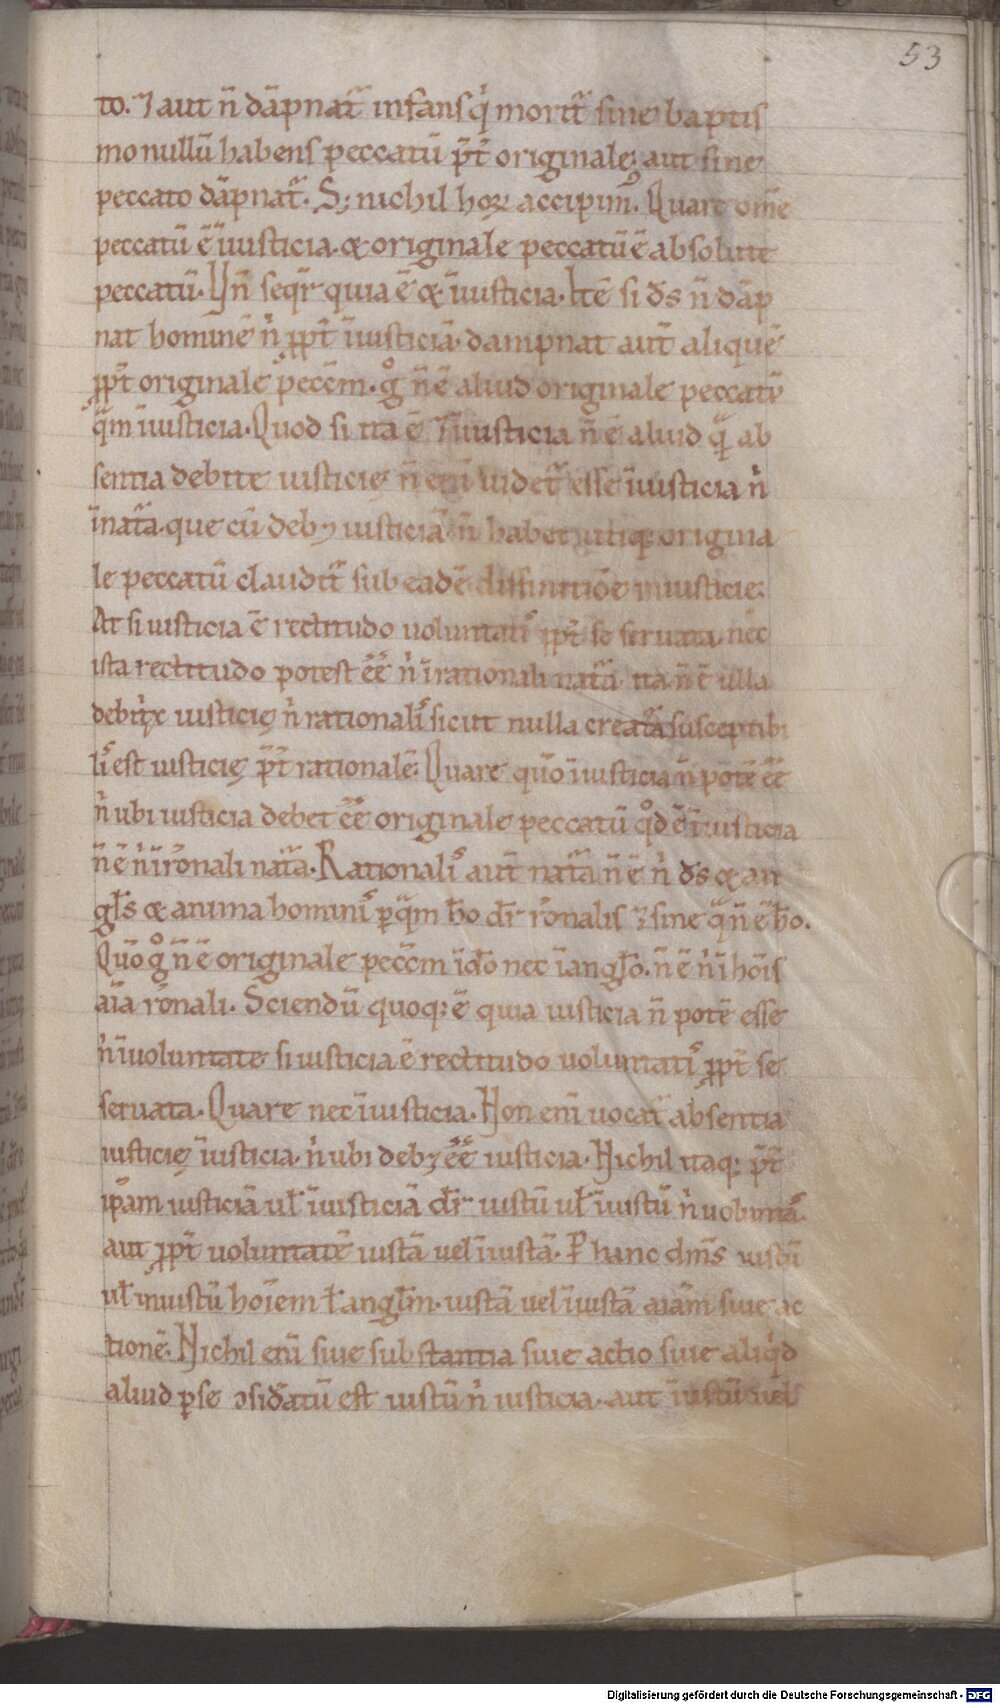 53
to. ⁊ aut n̄ dāpnat᷑ infans q̇ morit᷑ sine baptis
mo nullū habens peccatū p̄t originale; aut sine
peccato dāpnat᷑. S; nichil hoꝝ accipim᷒. Quare om̄e
peccatū ē īiusticia. & originale peccatū ē absolute
peccatū. Vn̄ seqr̄ quia ē & īiusticia. Itē si d̄s n̄ dāp
nat hominē n̍ ꝓpt̄ īiusticiā. dampnat aut̄ aliquē
ꝓpt̄ originale pecc̄m. g̊ n̄ ē aliud originale peccatū
q̄m īiusticia. Quod si ita ē ⁊ īiusticia n̄ ē aliud q̄ ab
sentia debite iusticię n̄ enī videt᷑ esse īiusticia n̍
ī nat᷑a. que cū deb; iusticiā n̄ habet utiq; origina
le peccatū claudit᷑ sub eadē diffinitiōe iniusticie.
At si iusticia ē rectitudo voluntatis ꝓpt̄ se servata. nec
ista rectitudo potest eē̄ n̍ ī rationali nat᷑a ita n̄ ē ulla
debitrix iusticię n̍ rationalis sicut nulla creat᷑a susceptibi
lis est iusticię p̄t rationalē. Quare quō īiusticia n̄ potē eē̄
n̍ ubi iusticia debet eē̄ originale peccatū q̊d ē īiusticia
n̄ ē n̍ ī rōnali nat᷑a. Rationalis aut̄ nat᷑a n̄ ē n̍ d̄s & an
gl̄s & anima hominis ꝑ q̄m h̄o dr̄ rōnalis ⁊ sine q̄ n̄ ē h̄o.
Quō g̊ n̄ ē originale pecc̄m ī dō nec ī angl̄o. n̄ ē n̍ ī hōis
aīa rōnali. Sciendū quoq; ē quia iusticia n̄ potē esse
n̍ ī voluntate si iusticia ē rectitudo voluntatis ꝓpt̄ se
servata. Quare nec īiusticia. Non enī vocat᷑ absentia
iusticię īiusticia. n̍ ubi deb; eē̄ iusticia. Nichil itaq; p̄t
ip̄am iusticiā vl̄ īiusticiā dr̄ iustū vl̄ īiustū n̍ voluntas.
aut ꝓpt̄ voluntatē iustā vel īiustā. P hanc dm̄s iustū
vl̄ iniustū hoīem ł angl̄m. iustā vel īiustā aīam sive ac
tionē. Nichil enī sive substantia sive actio sive aliq̇d
aliud ꝑ se ꝯsid̄atū est iustū n̍ iusticia. aut īiustū vel
Digitalisierung gefördert durch die Deutsche Forschungsgemeinschaft - DFG